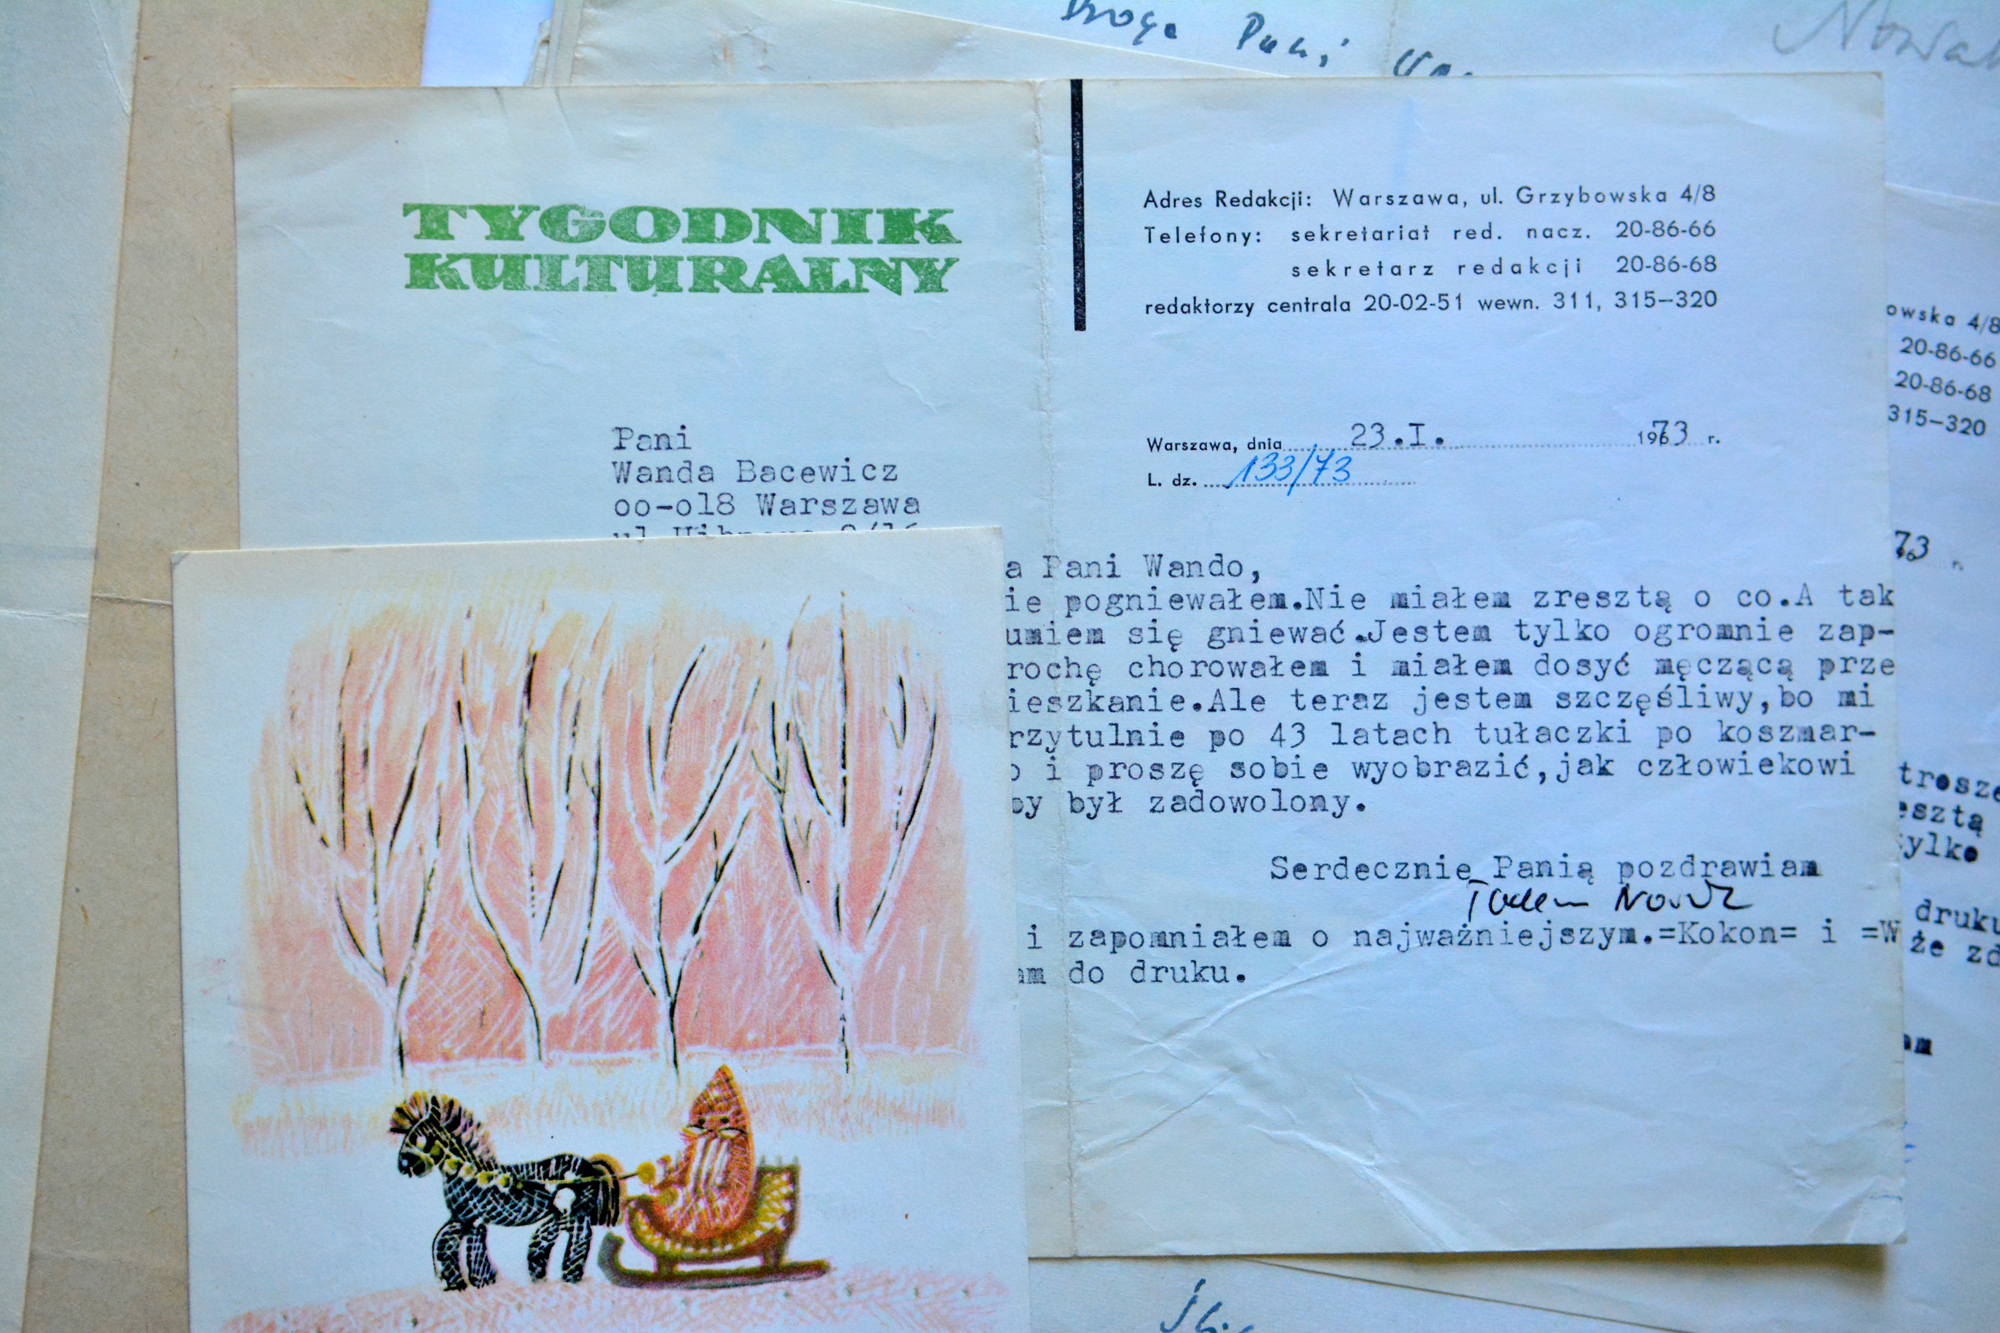 Droga Pani
Nowak
TYGODNIK
KULTURALNY
Adres Redakcji: Warszawa, ul. Grzybowska 4/8
Telefony: sekretariat red. nacz. 20-86-66
sekretarz redakcji 20-86-68
redaktorzy centrala 20-02-51 wewn. 311, 315—320
Warszawa, dnia 23.I. 1973 r.
L. dz. 133/73
Pani
Wanda Bacewicz
oo-o18 Warszawa
a Pani Wando,
ie pogniewałem.Nie miałem zresztą o co.A tak
umiem się gniewać.Jestem tylko ogromnie zap-
rochę chorowałem i miałem dosyć męczącą prze
ieszkanie.Ale teraz jestem szczęśliwy,bo mi
rzytulnie po 43 latach tułaczki po koszmar-
o i proszę sobie wyobrazić,jak człowiekowi
by był zadowolony.
Serdecznie Panią pozdrawiam
Tadeusz Nowak
i zapomniałem o najważniejszym.=Kokon= i =W
am do druku.
owska 4/8
20-86-66
20-86-68
315—320
73 r.
trosze
esztą
tylko
druku
że zd
am